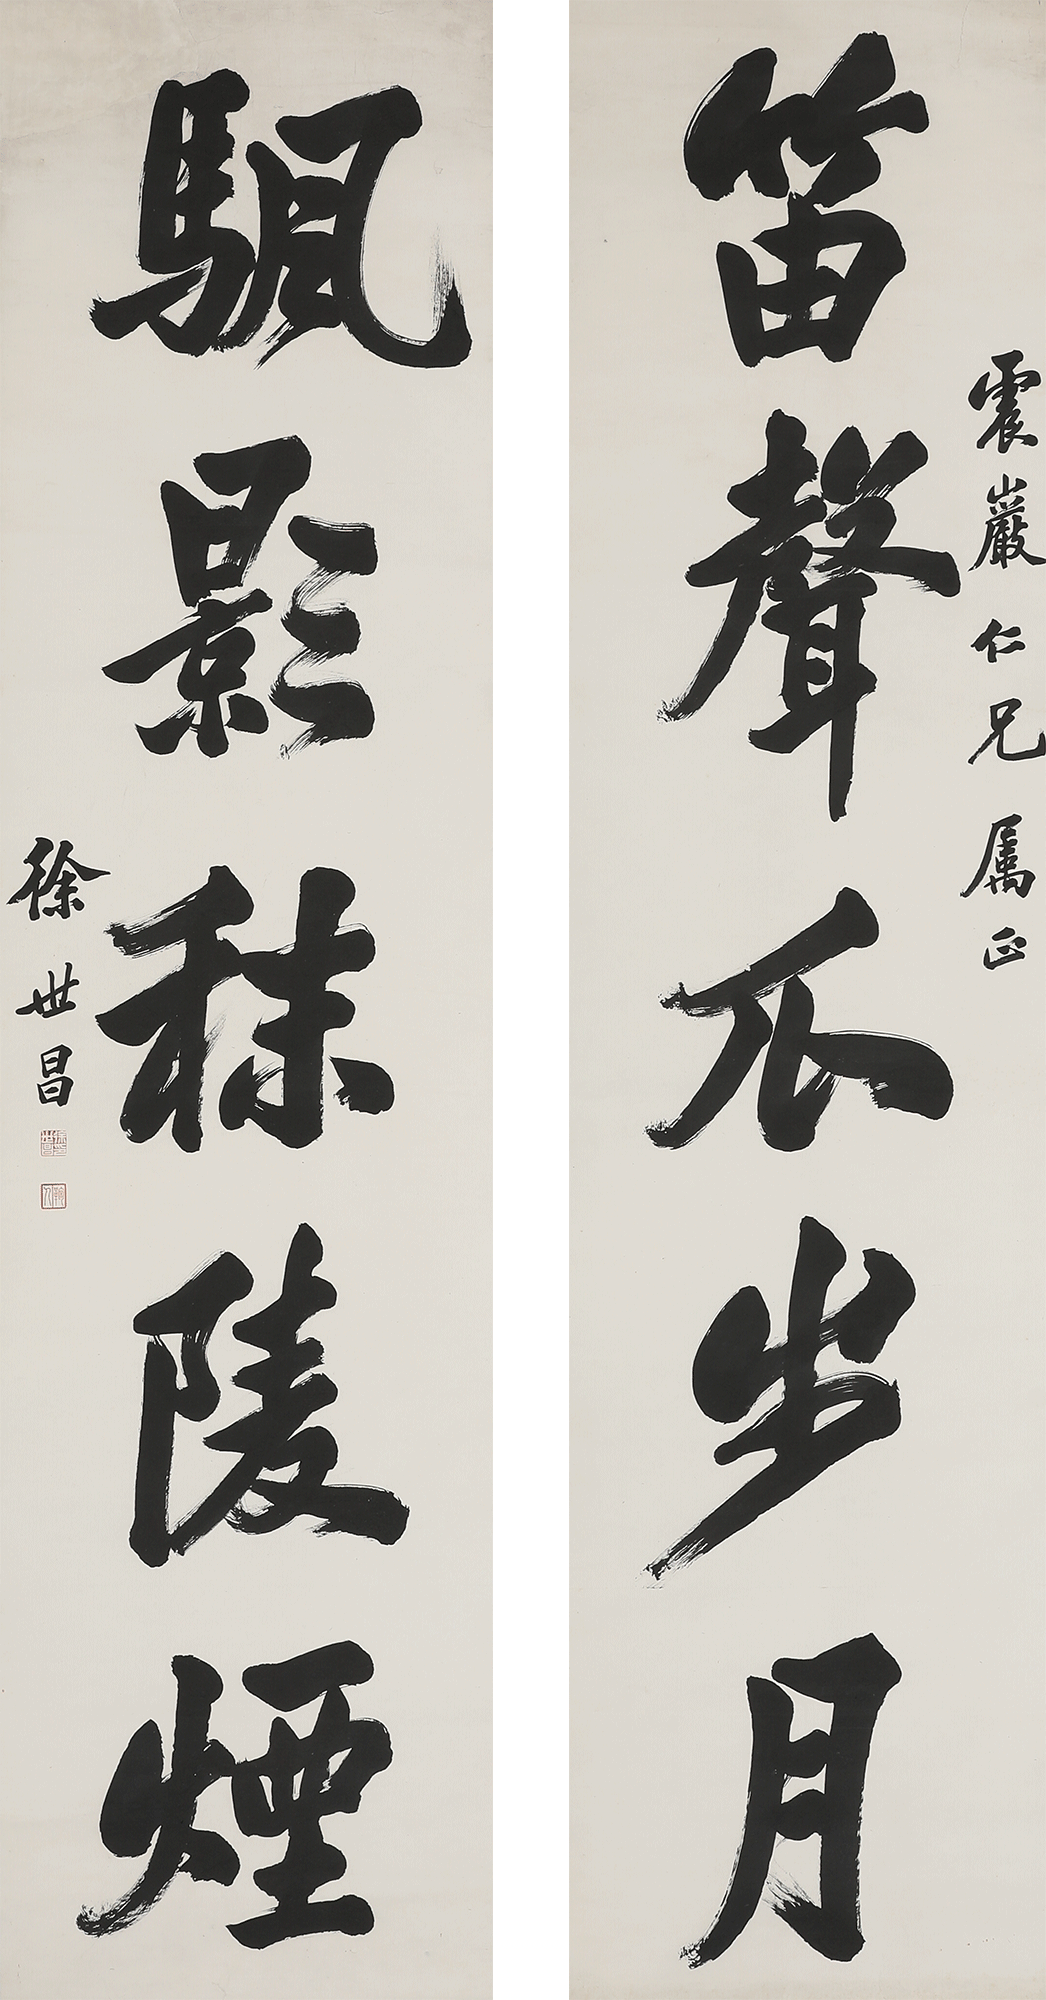 震巖仁兄属正
笛聲瓜步月
颿影秣陵煙
徐世昌